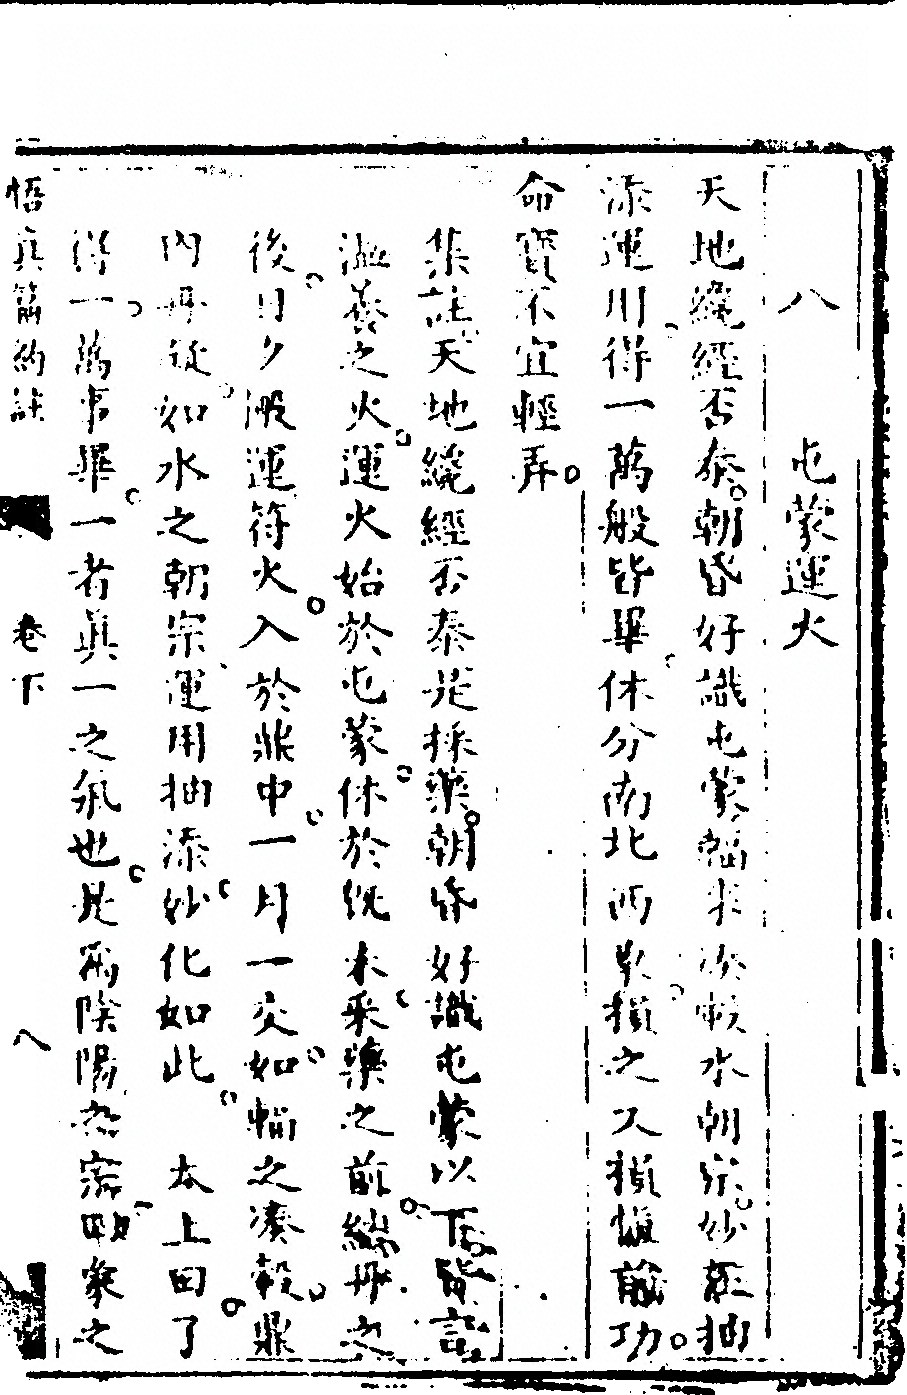 八　屯蒙運火
天地纔經否泰朝昏好識屯蒙輻來湊轂水朝宗妙在抽
添運用得一萬般皆畢休分南北西東損之又損慎前功
命寶不宜輕弄
集註天地纔經否泰是採藥朝昏好識屯蒙以下皆言
溫養之火運火始於屯蒙休於既未采藥之前結丹之
後日夕搬運符火入於鼎中一月一交如輻之湊轂鼎
內丹從如水之朝宗運用抽添妙化如此　本上田了
得一萬事畢一者眞一之氣也是爲陰陽
悟眞篇約註　卷下　八